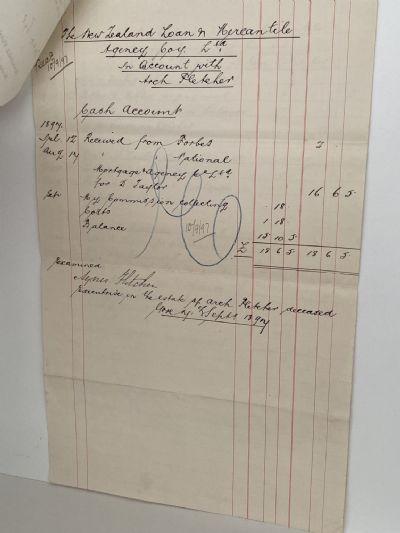 The New Zealand Loan & Mercantile
Agency Coy. Ltd
In Account with
Arch Fletcher
Read
10/9/97
Cash Account
1897
Jul. 12 Received from Forbes 2
Aug 14 " National
Mortgage & Agency Co Ltd
for D Taylor 16 6 5
My Commission collecting 18
Costs 1 18
Balance 15 10 5
10/9/97
£ 18 6 5 18 6 5
Examined
Agnes Fletcher
Executrix in the estate of Arch Fletcher deceased
Gore Sept 1897